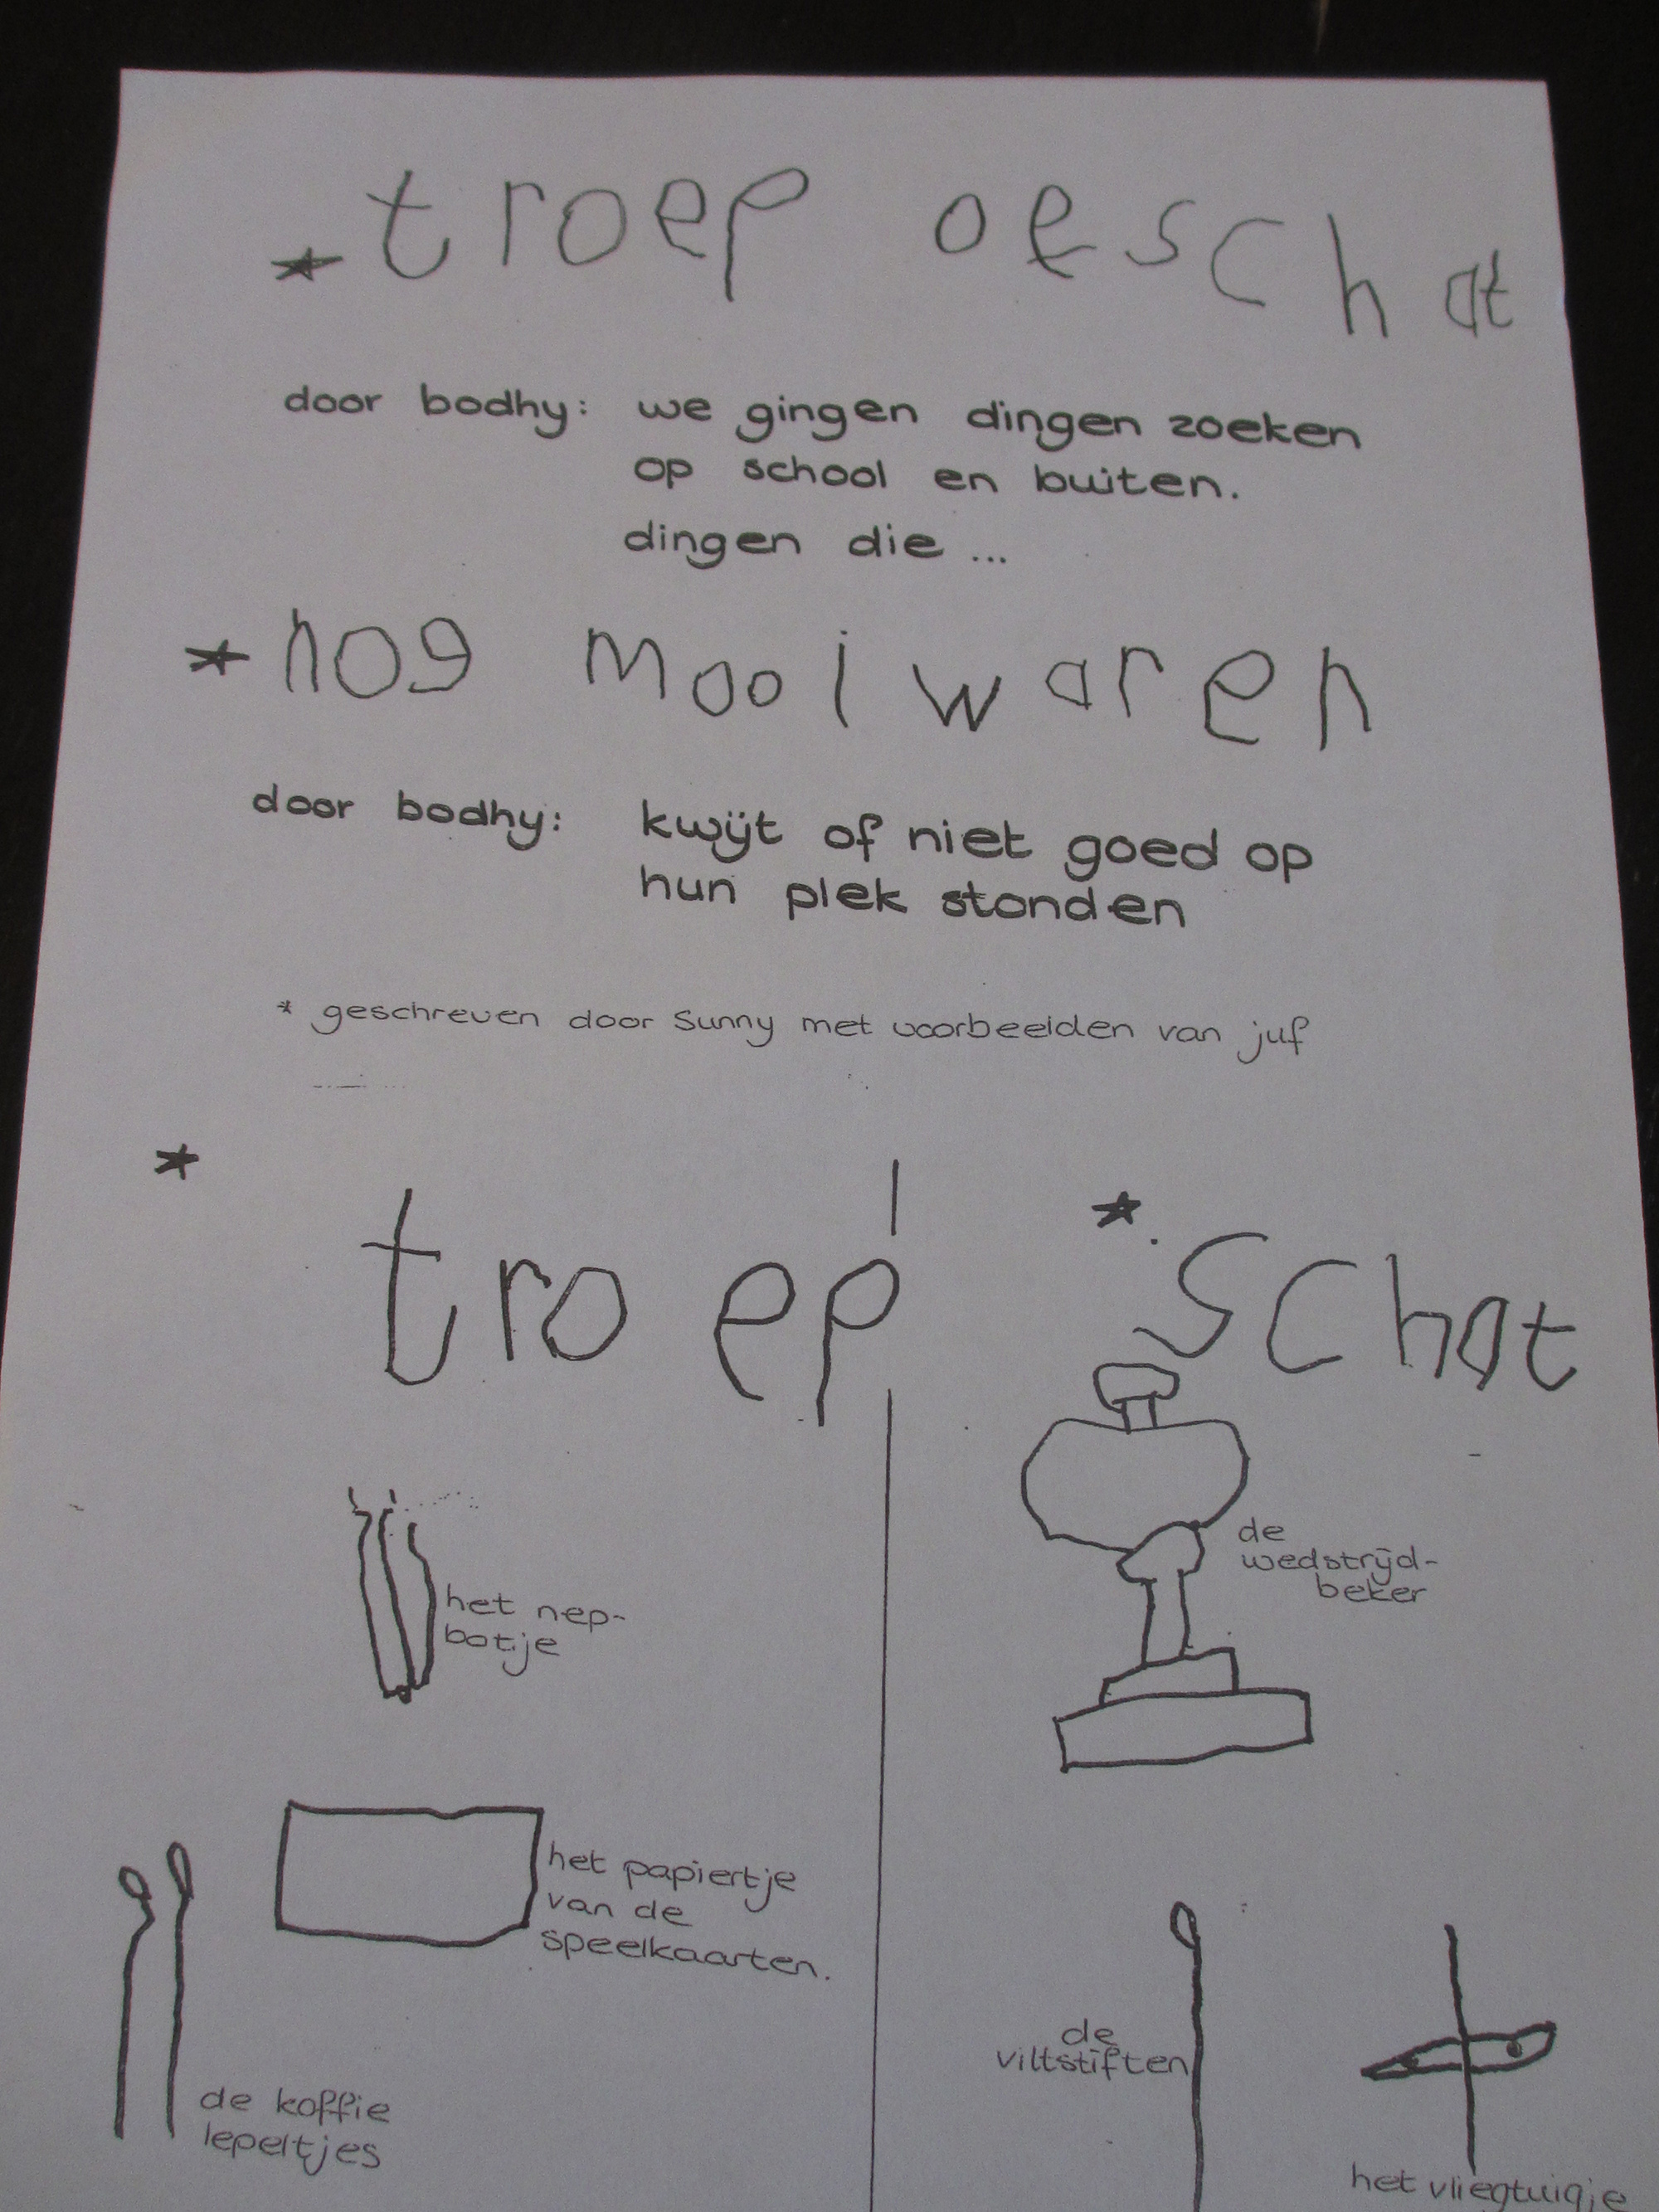 * troep oeschat
door bodhy: we gingen dingen zoeken
op school en buiten.
dingen die ...
* nog mooi waren
door bodhy: kwijt of niet goed op
hun plek stonden
* geschreven door Sunny met voorbeelden van juf
* troep
* schat
het nep-
botje
de
wedstrijd-
beker
het papiertje
van de
speelkaarten.
de koffie
lepeltjes
de
viltstiften
het vliegtuigje